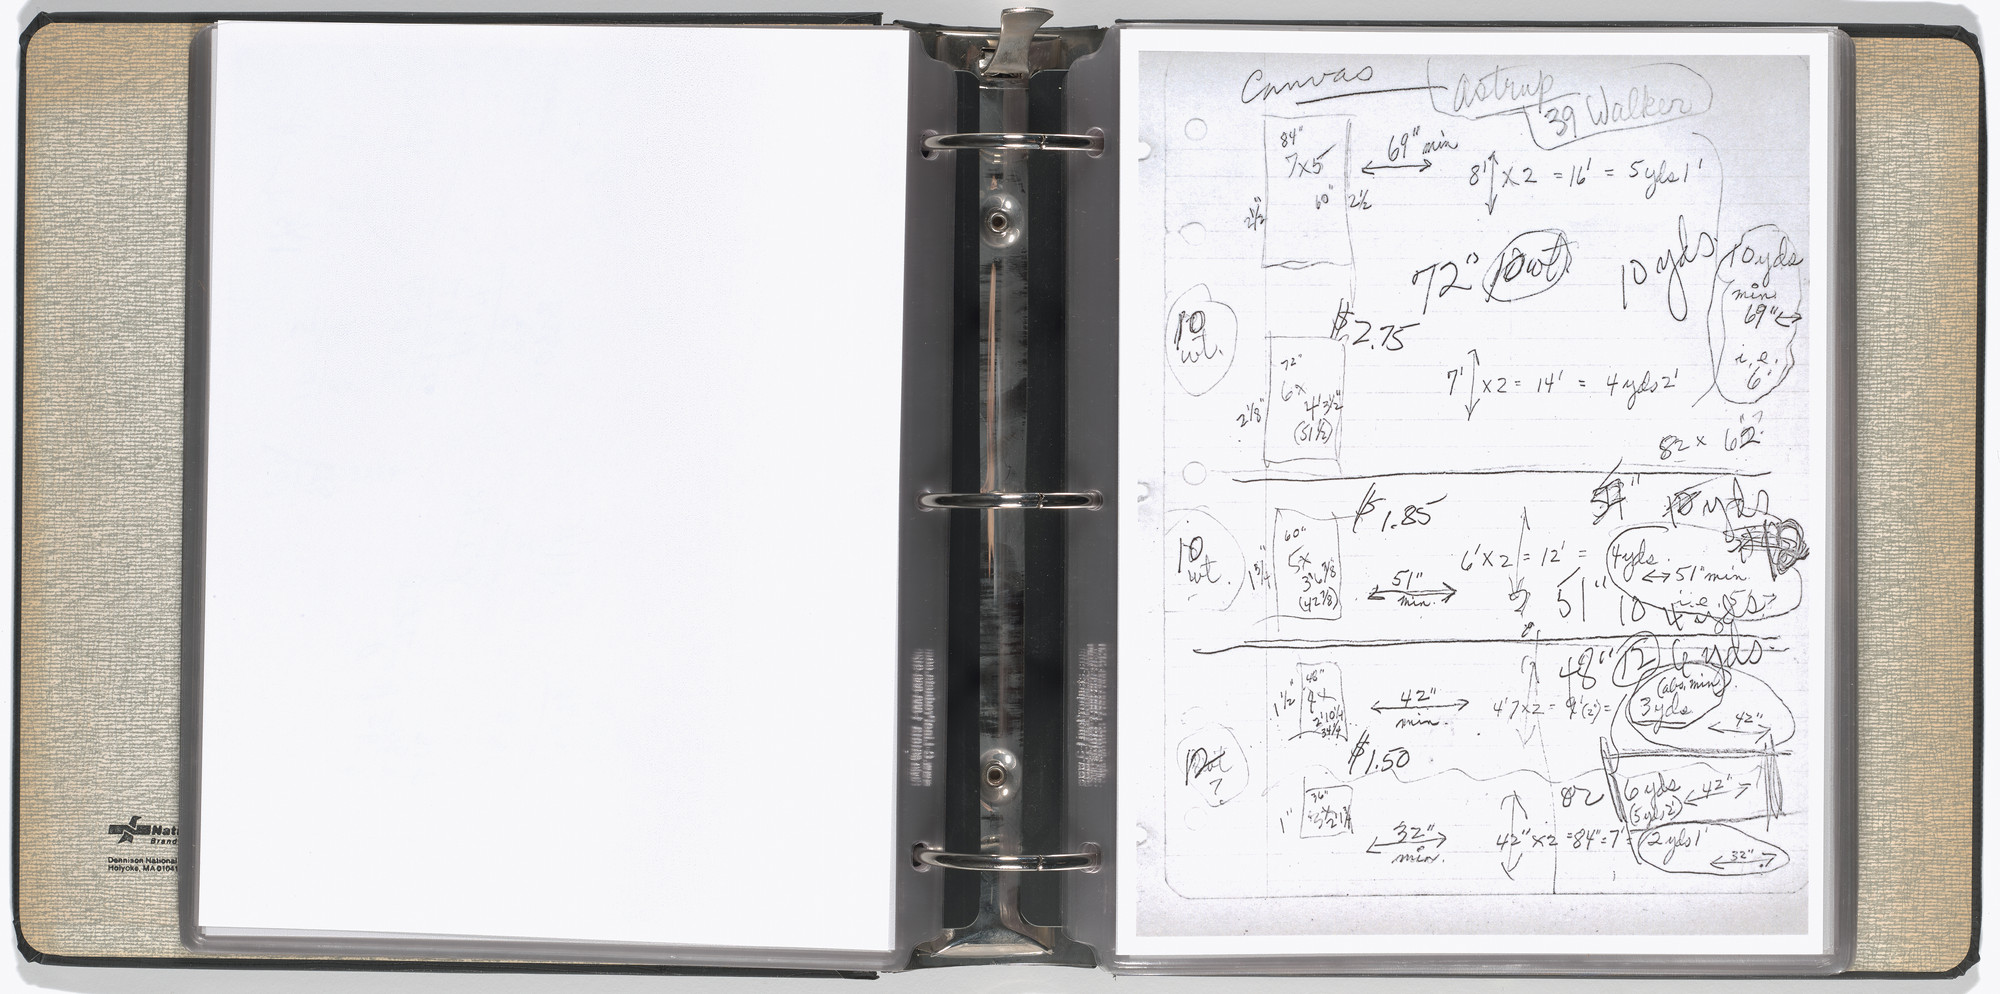 Nati
Brand
Dennison National
Holyoke, MA 01041
Canvas
Astrup
39 Walker
84"
7x5
60"
2½
2½
69" min
8' x 2 = 16' = 5 yds 1'
72" 10 wt.
10 yds
10 yds
min.
69"
i.e.
6'
10
wt.
$2.75
72"
6x
4'3½"
(51½)
2⅛"
7' x 2 = 14' = 4 yds 2'
82 x 62"
$1.85
54"
10 yds
10
wt.
60"
5x
3'6⅞
(42⅞)
1¾
51"
min.
6' x 2 = 12' =
4 yds.
51" min.
i.e.
51" 10
48" 12 6 yds.
(abs. min)
3 yds
42"
48"
4x
2'10¼
34¼
1½"
42"
min.
4'7 x 2 = 9'(2') =
$1.50
?
36"
1"
82
6 yds
42"
32"
min.
42" x 2 = 84" = 7' =
2 yds 1'
32"